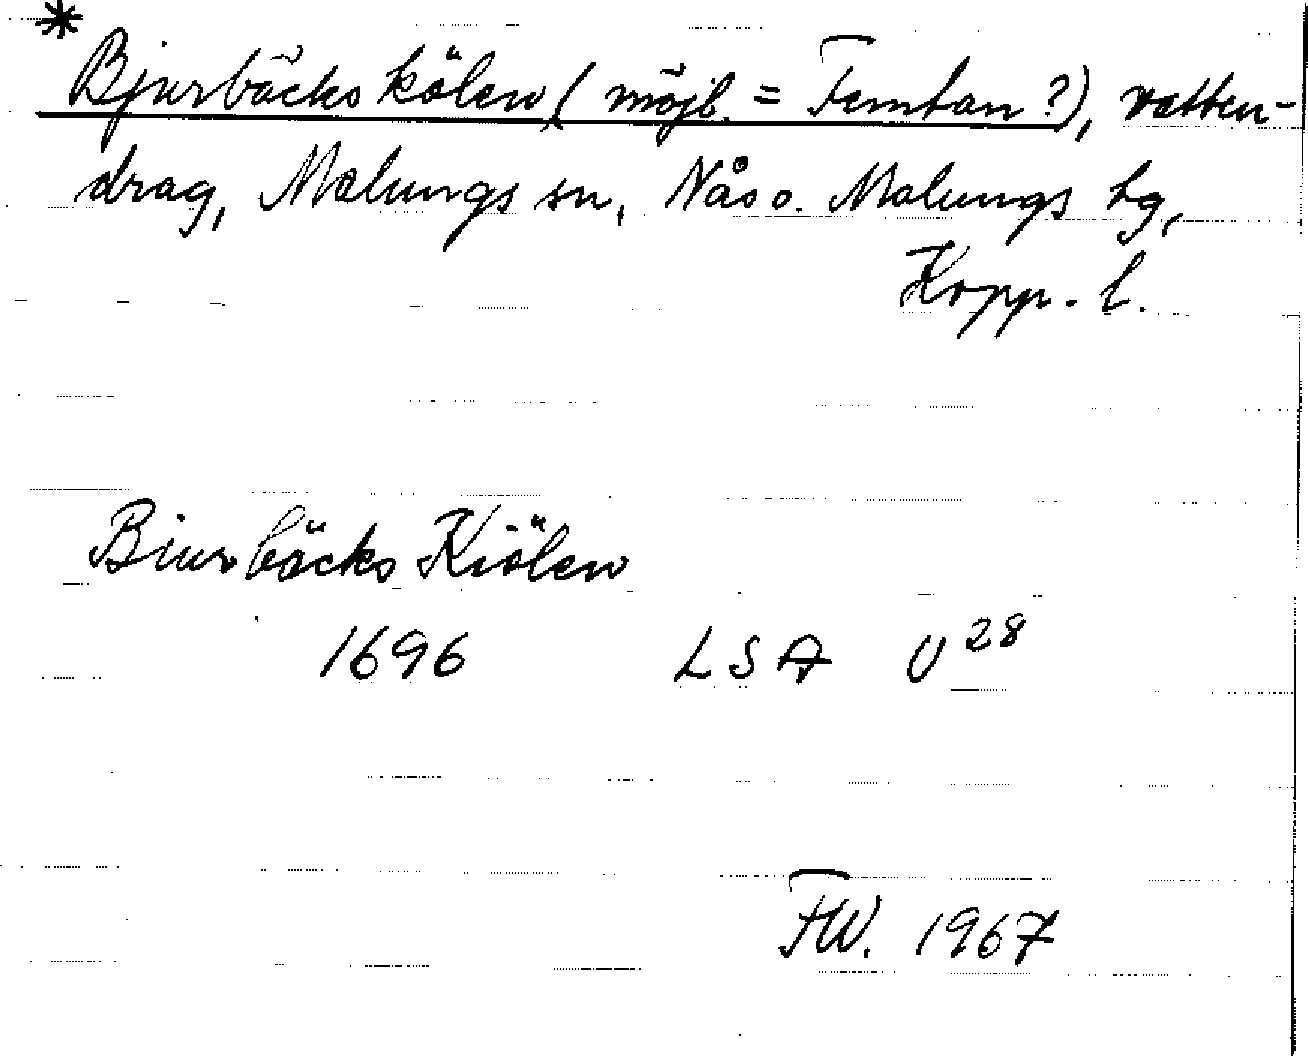 * Bjurbäckskölen (möjl. = Femtan?), vatten-
drag, Malungs sn, Nås o. Malungs hg,
Kopp. l.
Biurbäcks Kiölen
1696 LSA U 28
FW. 1967